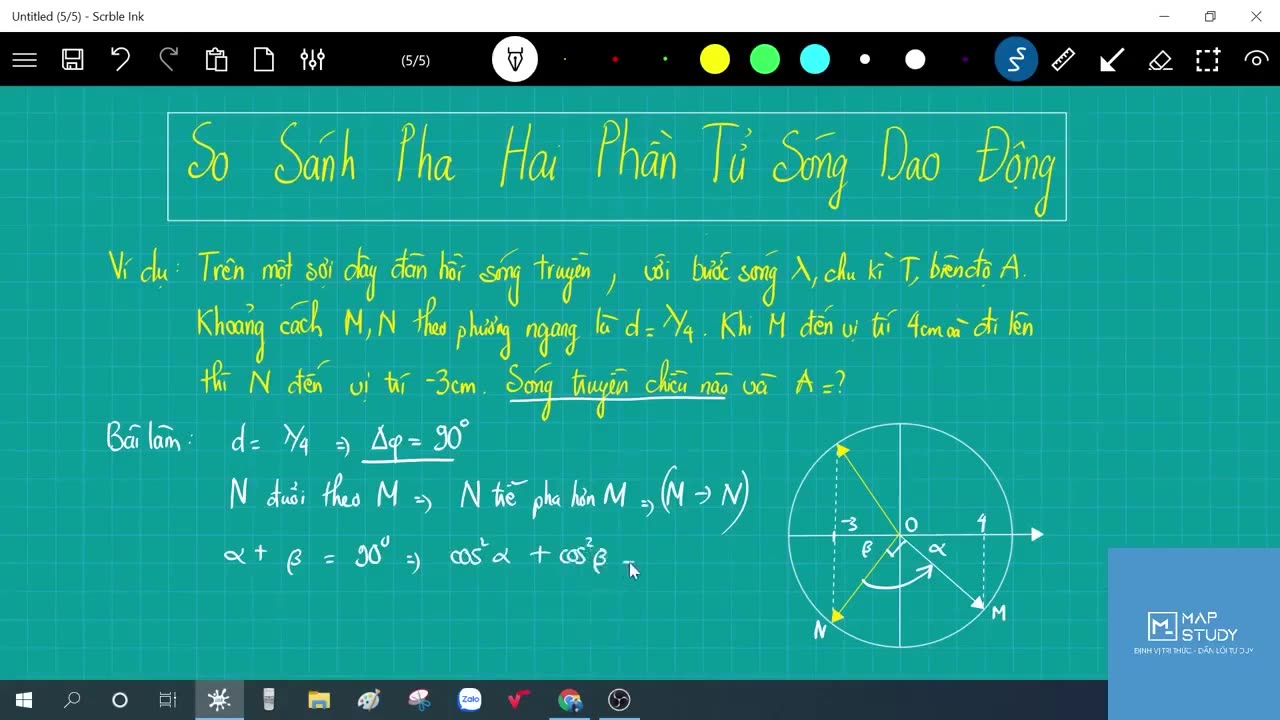 Untitled (5/5) - Scrble Ink
(5/5)
So Sánh Pha Hai Phần Tử Sóng Dao Động
Ví dụ: Trên một sợi dây đàn hồi sóng truyền, với bước sóng λ, chu kì T, biên độ A.
Khoảng cách M, N theo phương ngang là d = λ/4. Khi M đến vị trí 4cm và đi lên
thì N đến vị trí -3cm. Sóng truyền chiều nào và A = ?
Bài làm: d = λ/4 => Δφ = 90°
N đuổi theo M => N trễ pha hơn M => (M → N)
α + β = 90° => cos²α + cos²β =
-3 O 4
β α
N M
MAP
STUDY
ĐỊNH VỊ TRI THỨC - DẪN LỐI TƯ DUY
Zalo